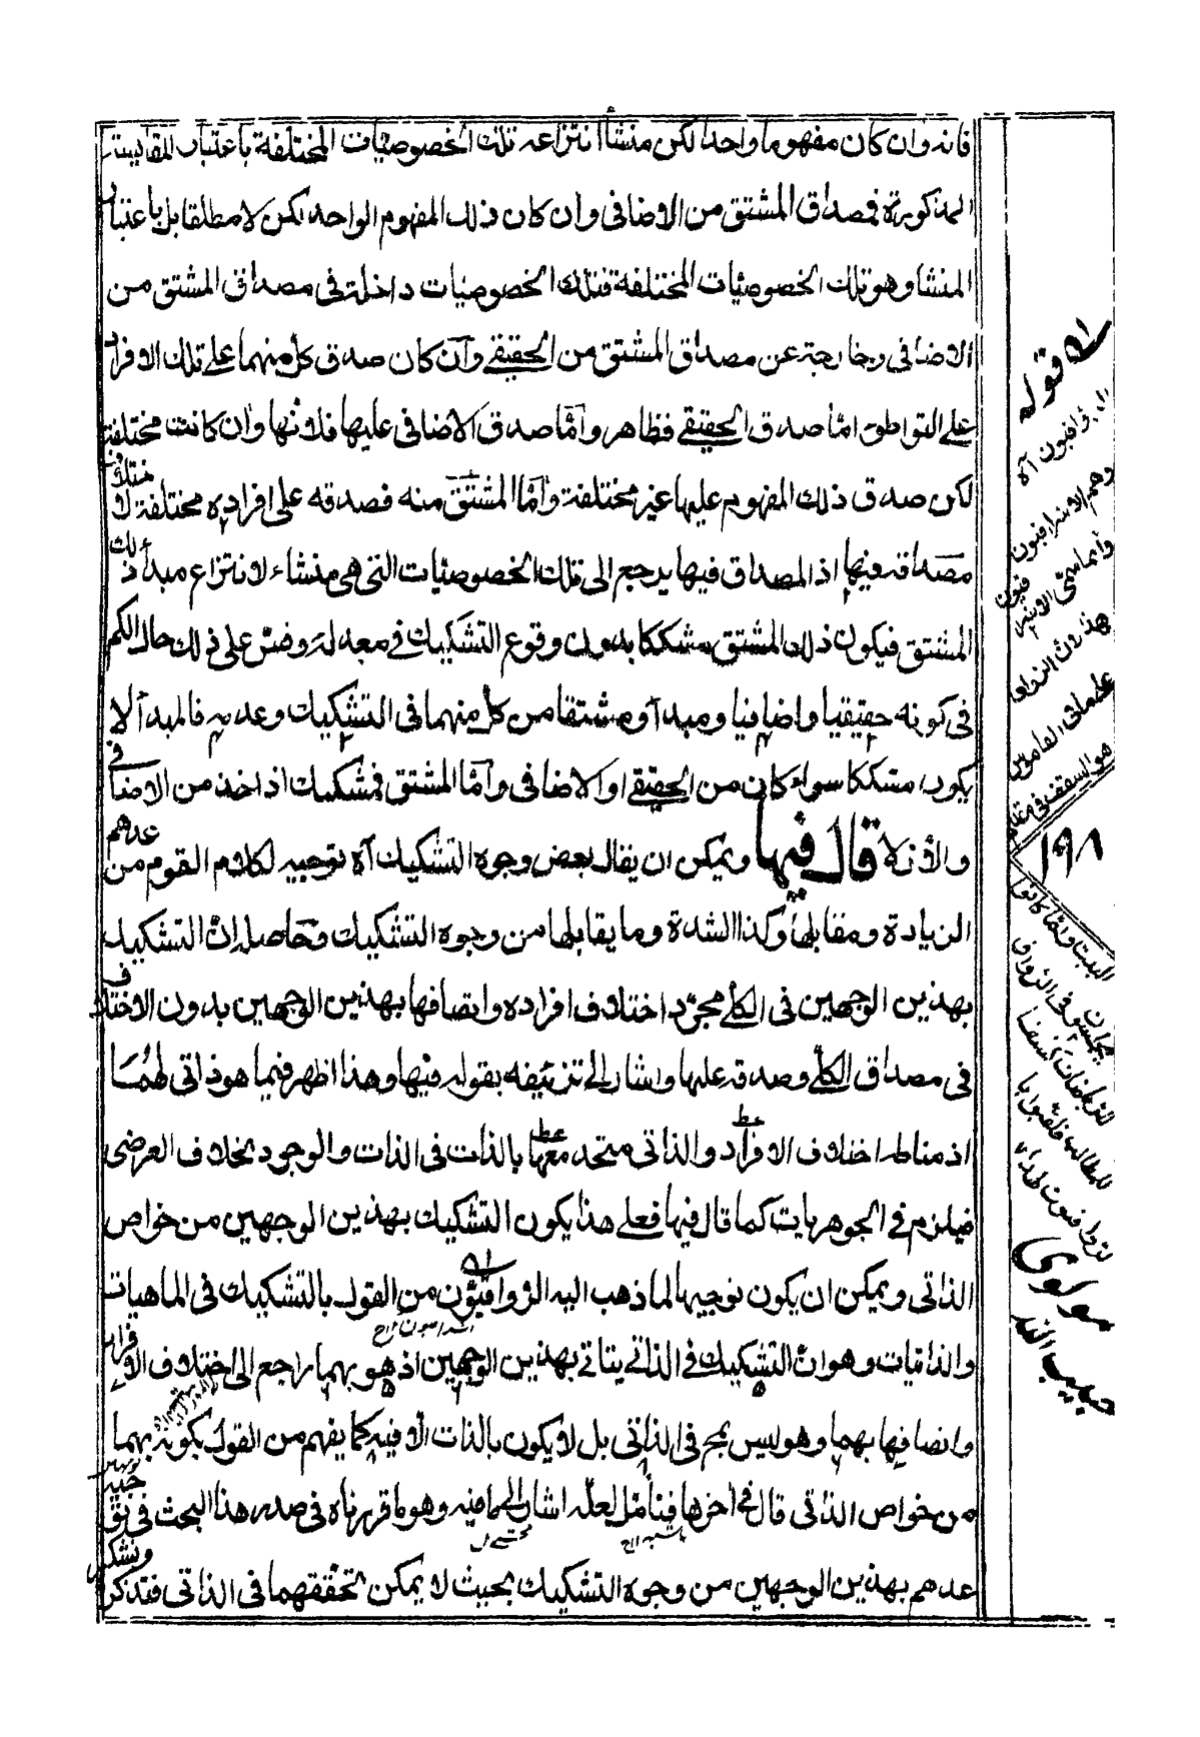 فانه وان كان مفهوما واحدا لكن منشأ انتزاعه تلك الخصوصيات المختلفة باعتبار المقايسة
المذكورة فمصداق المشتق من الاضافى وان كان ذلك المفهوم الواحد لكن لا مطلقا بل باعتبار
المنشا وهو تلك الخصوصيات المختلفة فتلك الخصوصيات داخلة فى مصداق المشتق من
الاضافى وخارجة عن مصداق المشتق من الحقيقى وان كان صدق كل منهما على تلك الافراد
على التواطؤ امّا صدق الحقيقى فظاهر وامّا صدق الاضافى عليها فلانها وان كانت مختلفة
لكن صدق ذلك المفهوم عليها غير مختلفة وامّا المشتق منه فصدقه على افراده مختلفة لاختلاف
مصداقه فيها اذ المصداق فيها يرجع الى تلك الخصوصيات التى هى منشاء لانتزاع مبدأ ذلك
المشتق فيكون ذلك المشتق مشككا بدون وقوع التشكيك فى معدله وقس على ذلك حال الكم
فى كونه حقيقيا واضافيا ومبدأ ومشتقا من كل منهما فى التشكيك وعدمه فالمبدأ لا
يكون مشككا سواء كان من الحقيقى او الاضافى وامّا المشتق فمشكك اذا اخذ من الاضافى
والا فلا قال فيها ويمكن ان يقال بعض وجوه التشكيك آه توجيه لكلام القوم من عدهم
الزيادة ومقابلها وكذا الشدة وما يقابلها من وجوه التشكيك وحاصله ان التشكيك
بهذين الوجهين فى الكلى مجرّد اختلاف افراده واتصافها بهذين الوجهين بدون الاختلاف
فى مصداق الكلى وصدقه عليها واشار الى تزئيفه بقوله فيها وهذا اظهر فيما هو ذاتى لهما
اذ مناطه اختلاف الافراد والذاتى متحد معها بالذات فى الذات والوجود بخلاف العرضى
فيلزم فى الجوهريات كما قال فيها فعلى هذا يكون التشكيك بهذين الوجهين من خواص
الذاتى ويمكن ان يكون توجيها لما ذهب اليه الرواقيّون من القول بالتشكيك فى الماهيات
والذاتيات وهو ان التشكيك فى الذاتى يتاتى بهذين الوجهين اذ هو بهما راجع الى اختلاف الافراد
واتصافها بهما وهو ليس بمجر فى الذاتى بل لا يكون بالذات الا فيه كما يفهم من القول بكونه بهما
من خواص الذاتى قال فى اخرها فتأمّل لعلّه اشار الى ما فيه وهو ما قررناه فى صدر هذا البحث فى توجيه
عدهم بهذين الوجهين من وجوه التشكيك بحيث لا يمكن تحققهما فى الذاتى فتذكر وتشكر
قوله
الرواقيون آه
وهم الاشراقيون
وانما سمّى الاشراقيون
علمائى القاموس
هو السقف فى مقدم
١٩٨
البيت وانما كانوا
يجلسون فى الرواق
مولوى
حبيب الله